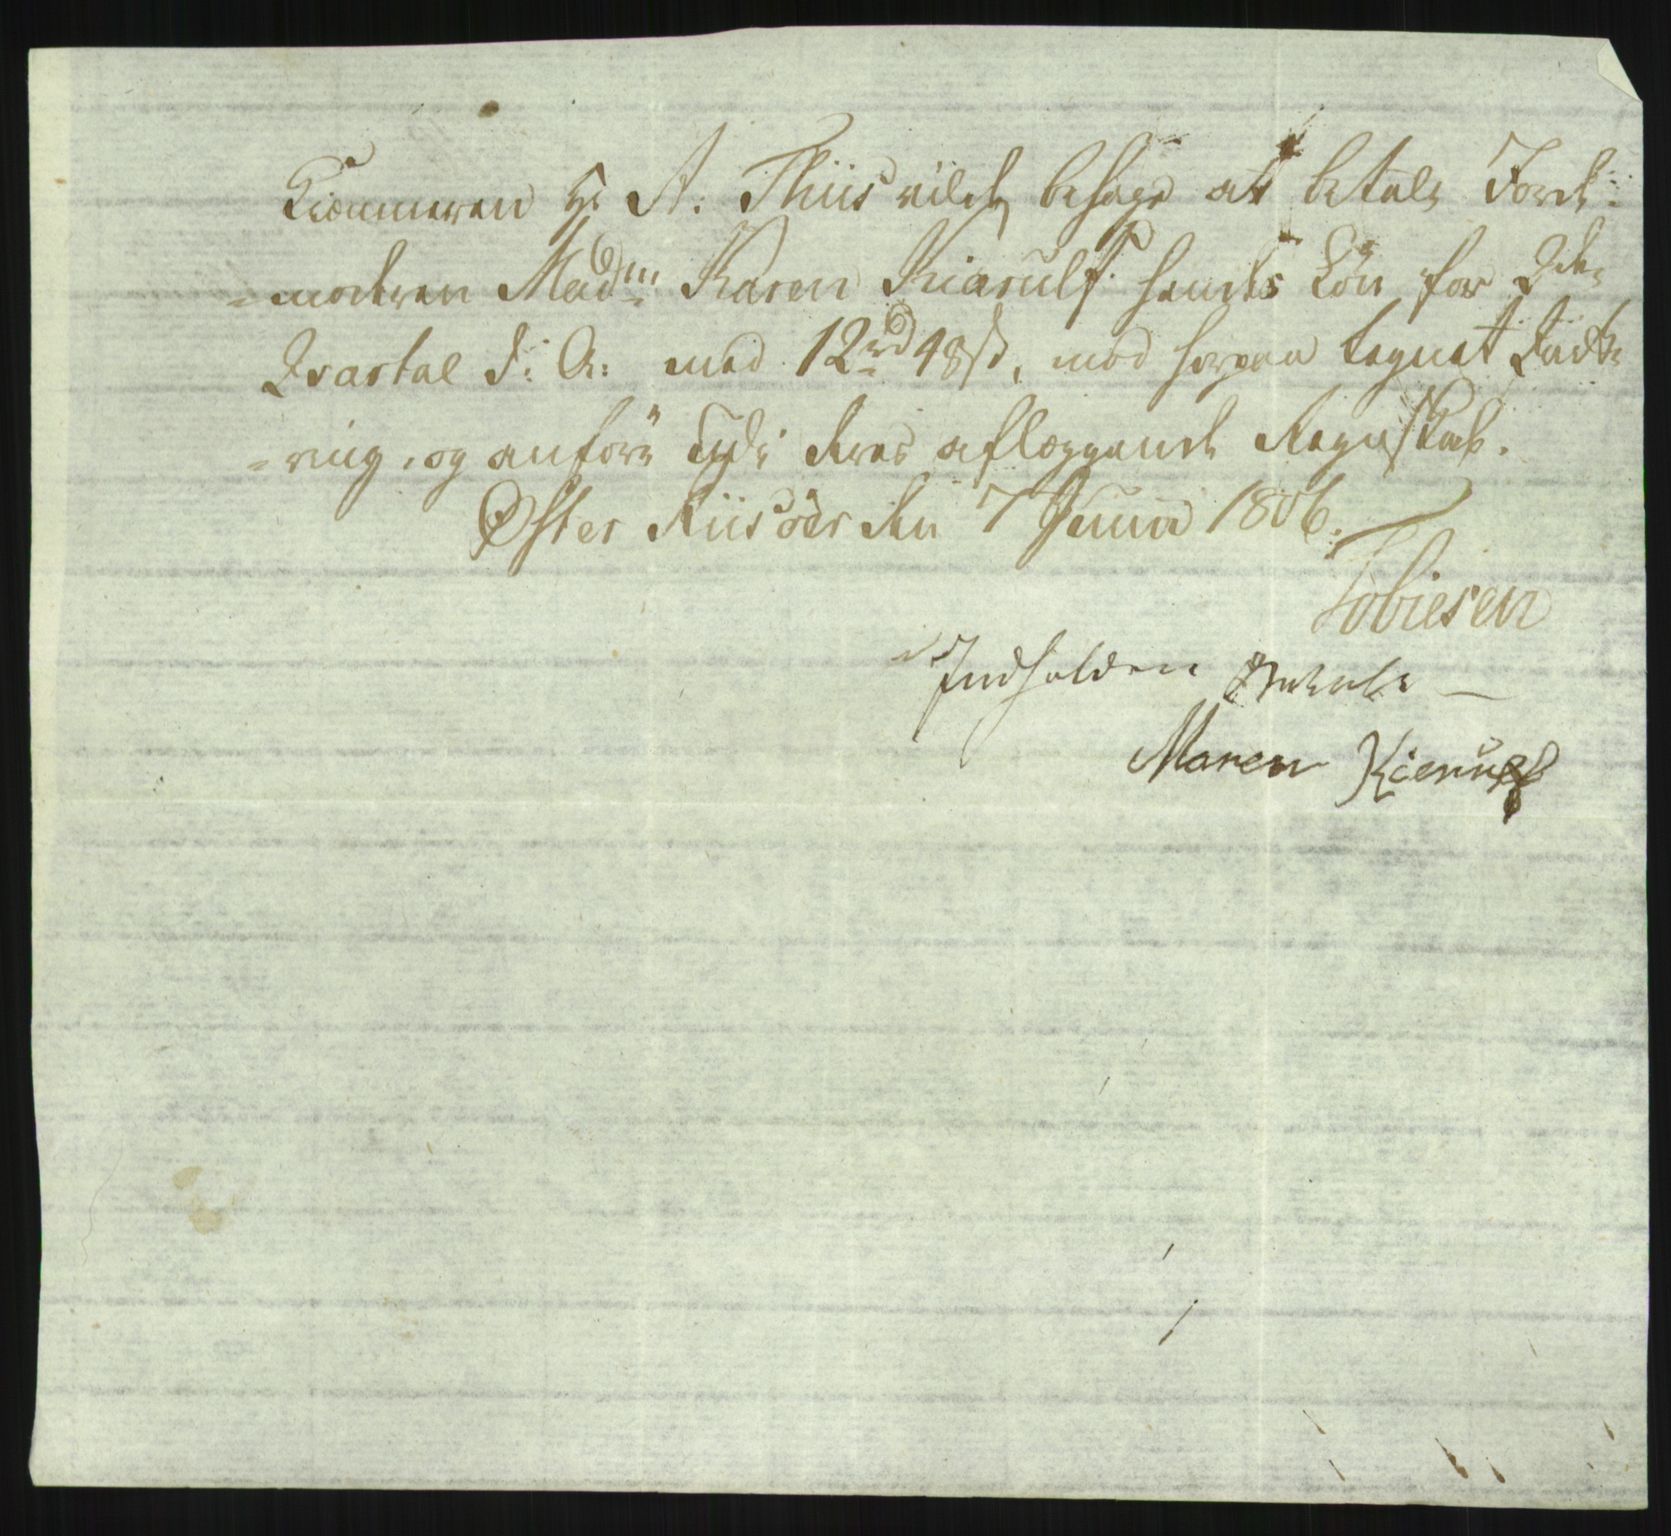 Kiæmneren Hr A: Thiis vilde behage at betale Jorde:
=moderen Madm Karen Kiærulf hendes Lön for 2de
Qvartal d: A: med 12rd 48s, mod herpaa tegnet Qvite
=ring, og anföre udi deres aflæggende Regnskab.
Øster Riisöer den 7 Junii 1806.
Tobiesen
Indholden Betalt
Maren Kierulf